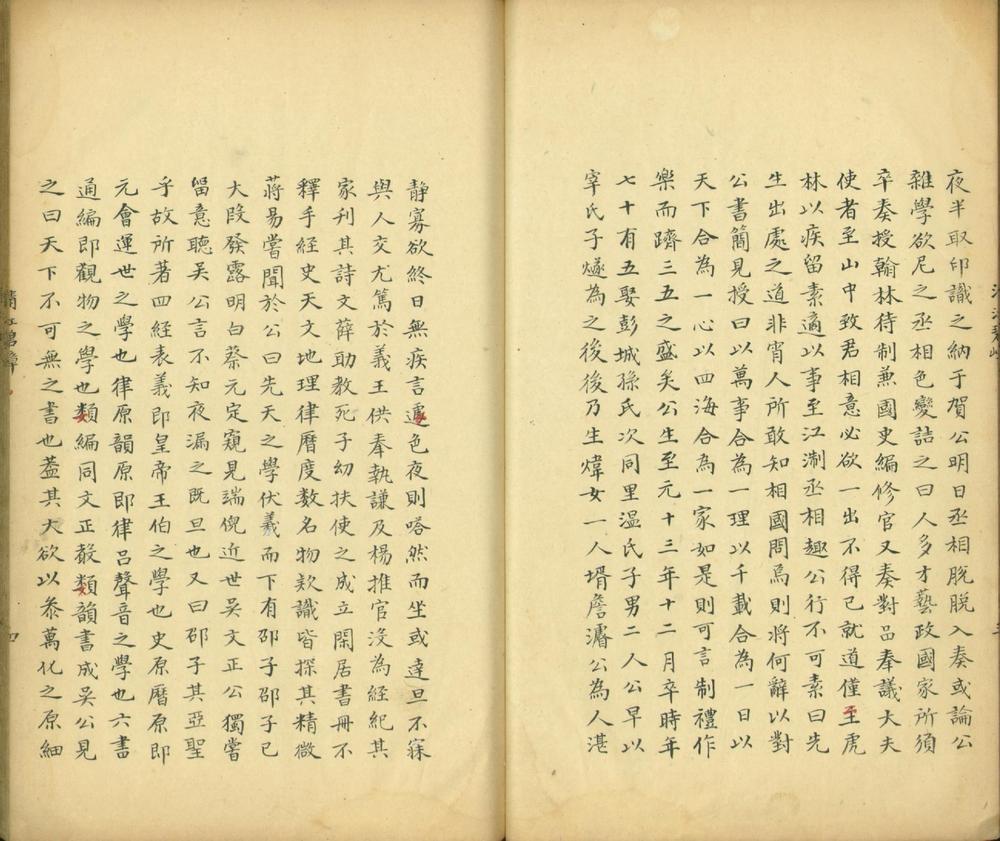 夜半取印識之納于賀公明日丞相脫脫入奏或論公
雜學欲尼之丞相色變詰之曰人多才藝政國家所須
卒奏授翰林待制兼國史編修官又奏對品奉議大夫
使者至山中致君相意必欲一出不得已就道僅至虎
林以疾留素適以事至江淛丞相趣公行不可素曰先
生出處之道非宵人所敢知相國問焉則將何辭以對
公書簡見授曰以萬事合為一理以千載合為一日以
天下合為一心以四海合為一家如是則可言制禮作
樂而躋三五之盛矣公生至元十三年十二月卒時年
七十有五娶彭城孫氏次同里溫氏子男二人公早以
宰氏子燧為之後後乃生煒女一人壻詹濬公為人湛
靜寡欲終日無疾言遽色夜則嗒然而坐或達旦不寐
與人交尤篤於義王供奉執謙及楊推官沒為經紀其
家刊其詩文薛助教死子幼扶使之成立閑居書冊不
釋手經史天文地理律曆度數名物欵識皆探其精微
蔣易嘗聞於公曰先天之學伏羲而下有邵子邵子已
大段發露明白蔡元定窺見端倪近世吳文正公獨嘗
留意聽吳公言不知夜漏之既旦也又曰邵子其亞聖
乎故所著四經表義即皇帝王伯之學也史原曆原即
元會運世之學也律原韻原即律呂聲音之學也六書
通編即觀物之學也類編同文正聲類韻書成吳公見
之曰天下不可無之書也蓋其大欲以叅萬化之原細
四